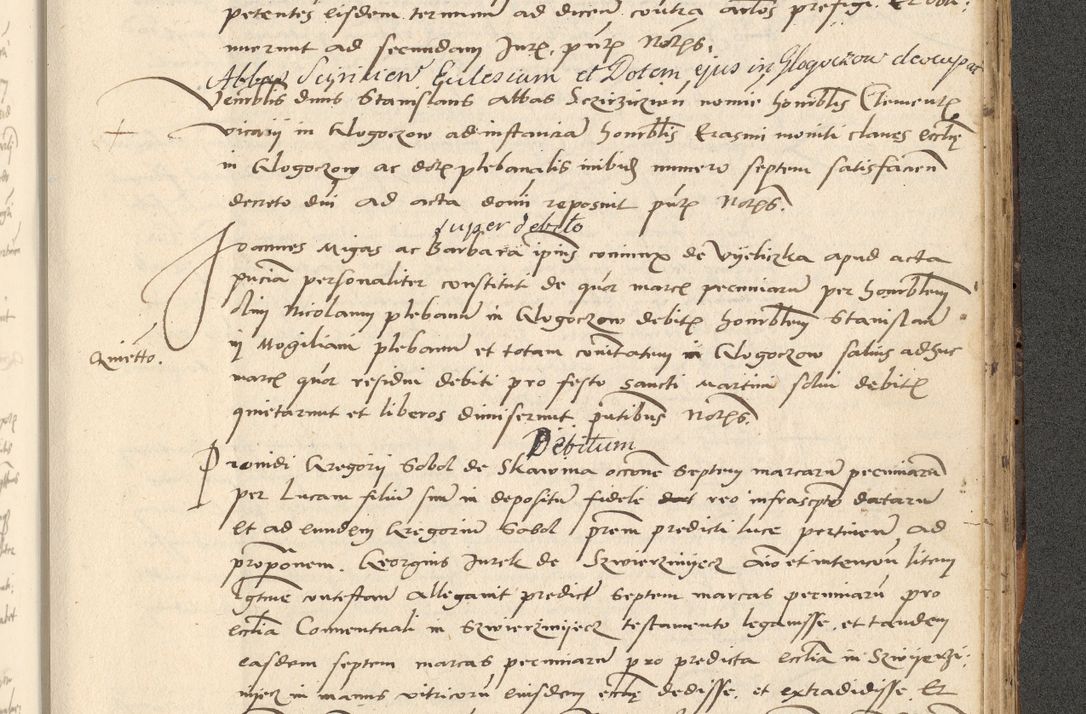 petentes eisdem terminum ad dicen contra actos prefigi. Et obti:
nuerunt ad secundam Jurx, putx Notxs.
Abbas Scyriciens Eclesium et Dotem ejus in Glogoczow deoccupat
Venerblis dnus Stanislaus abbas Sczirziczien nomine honorblis Clementx
vicarij in Glogoczow ad instantia honorblis Erasmi moniti claves ecclie
in Glogoczow ac dotx plebanalis inibidem numero septem satisfacien
decreto dni ad acta domi reposuit putx Notxs.
super debito
Joannes Migas ac Barbara ipius coniunx de Vyeliczka apud acta
pncia personaliter constituti de quor marcx pecuniaru per honorblem
olim Nicolaum plebanu in Glogoczow debitx honorblem Stanislau
in Mogiliam plebanum et totam comitatem in Glogoczow salvis adhuc
Quietto.
marcx quor residui debiti pro festo sancti Martini solui debitx
quietarunt et liberos dimiserunt pntibus Notxs.
Debitum
Prouidi Gregorij Sobol de Skawina occone septem marcaru pecuniaru
per Lucam filiu suu in depositu fidele dat reo infrascpto dataru
Et ad eundem Gregoriu Sobol prem predicti luce pertinen ad
propōnem. Georgius Jurek de Szwierzinijecz aio et intencou litem
lgtime contestan allegauit predict septem marcas pecuniaru pro
ecclia Conuentuali in Szwierzinijecz testamento legauisse, et tandem
easdem septem marcas pecuniaru pro predicta ecclia in Szwijerzi:
nijecz in manus vitricoru eiusdem ecclie dedisse, et extradidisse Et